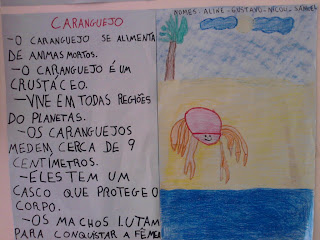 CARANGUEJO
-O CARANGUEJO SE ALIMENTA
DE ANIMAS MORTOS.
-O CARANGUEJO É UM
CRUSTÁCEO.
-VIVE EM TODAS REGIÕES
DO PLANETAS.
-OS CARANGUEJOS
MEDEM CERCA DE 9
CENTÍMETROS.
-ELES TEM UM
CASCO QUE PROTEGE O
CORPO.
-OS MACHOS LUTAM
PARA CONQUISTAR A FÊMEA
NOMES-ALINE-GUSTAVO-NICOLI-SAMUEL